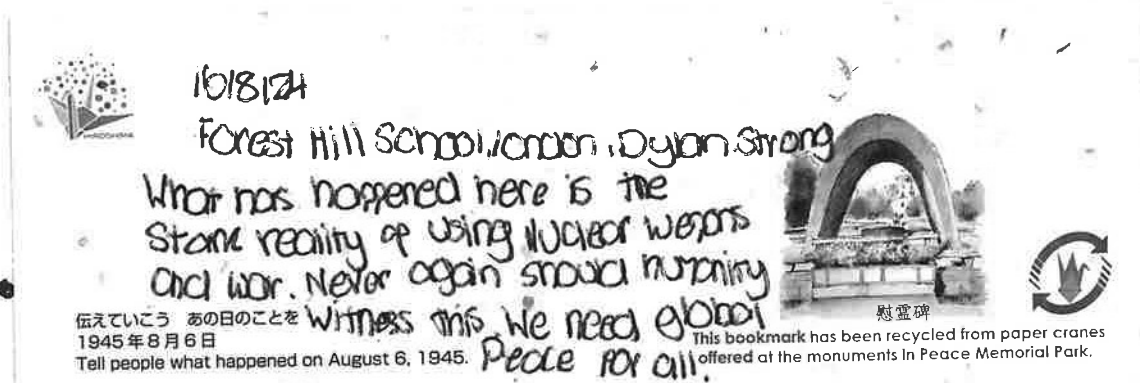 HIROSHIMA
10/8/24
Forest Hill School, London, Dylan Strong
What has happened here is the
Stark reality of using Nuclear Weapons
and war. Never again should humanity
Witness this. We need global
Peace for all.
伝えていこう あの日のことを
1945年8月6日
Tell people what happened on August 6, 1945.
慰霊碑
This bookmark has been recycled from paper cranes
offered at the monuments in Peace Memorial Park.